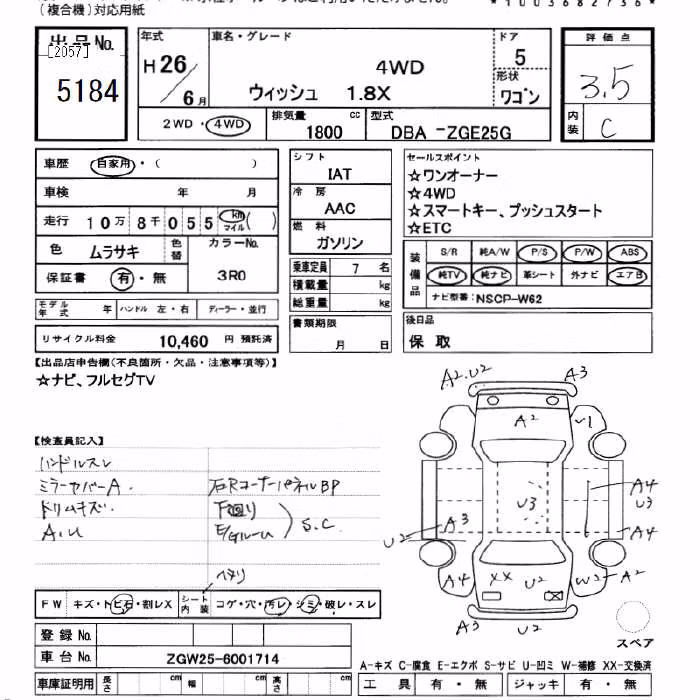 (複合機)対応用紙
*1003682736*
出品No.
[2057]
5184
年式
H26/6月
車名・グレード
4WD
ウィッシュ 1.8X
ドア
5
形状
ワゴン
評価点
3.5
内装
C
2WD・4WD
排気量 1800 cc
型式 DBA -ZGE25G
車歴 自家用・( )
車検 年 月
走行 10万8千055 km マイル ( )
色 ムラサキ 色替
カラーNo. 3R0
保証書 有・無
モデル年式 年 ハンドル 左・右 ディーラー・並行
リサイクル料金 10,460 円 預託済
シフト
IAT
冷房
AAC
燃料
ガソリン
乗車定員 7 名
積載量 kg
総重量 kg
書類期限
月 日
セールスポイント
☆ワンオーナー
☆4WD
☆スマートキー、プッシュスタート
☆ETC
装備品
S/R 純A/W P/S P/W ABS
純TV 純ナビ 革シート 外ナビ エアB
ナビ型番:NSCP-W62
後日品
保 取
【出品店申告欄(不良箇所・欠品・注意事項等)】
☆ナビ、フルセグTV
【検査員記入】
ハンドルスレ
ミラーカバーA.
ドリムキズ.
A.U
右RコーナーパネルBP
下回り
E/Gルーム
S.C.
ヘタリ
FW キズ・トビ石・割レX
シート内装 コゲ・穴・汚レ・シミ・破レ・スレ
登録No.
車台No. ZGW25-6001714
車庫証明用 長さ cm 幅 cm 高さ cm
A2.U2
A3
A2
U1
U3
A4
U3
A3
U2
A4
A4
XX
U2
W2
A2
A3
U2
スペア
A-キズ C-腐食 E-エクボ S-サビ U-凹ミ W-補修 XX-交換済
工具 有・無 ジャッキ 有・無